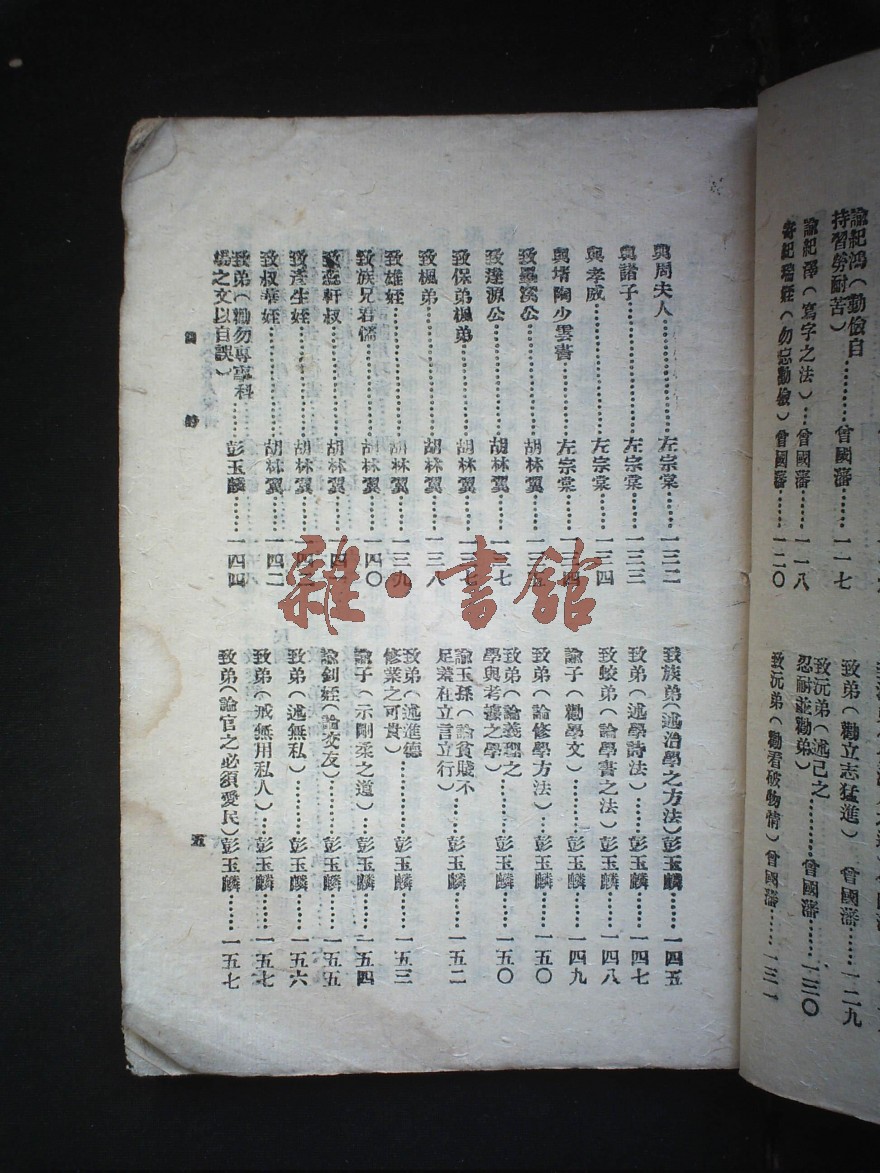 諭紀鴻（勤儉自
持習勞耐苦）………曾國藩……一一七
諭紀澤（寫字之法）…曾國藩……一一八
寄紀瑞姪（勿忘勤儉）曾國藩……一二〇
致弟（勸立志猛進）曾國藩……一二九
致沅弟（述己之
忍耐並勸弟）………曾國藩……一三〇
致沅弟（勸看破物情）曾國藩……一三一
與周夫人………左宗棠……一三二
與諸子………左宗棠……一三三
與孝威………左宗棠……一三四
與壻陶少雲書………左宗棠……一三四
致墨溪公………胡林翼……一三五
致達源公………胡林翼……一三七
致保弟楓弟………胡林翼……一三七
致楓弟………胡林翼……一三八
致雄姪………胡林翼……一三九
致族兄君儒………胡林翼……一四〇
致蔭軒叔………胡林翼……一四一
致彥生姪………胡林翼……一四二
致叔華姪………胡林翼……一四二
致弟（勸勿專事科
舉之文以自誤）……彭玉麟……一四四
致族弟（述治學之方法）彭玉麟……一四五
致弟（述學詩法）……彭玉麟……一四七
致蛟弟（論學書之法）…彭玉麟……一四八
諭子（勸學文）………彭玉麟……一四九
致弟（論修學方法）……彭玉麟……一五〇
致弟（論義理之
學與考據之學）………彭玉麟……一五〇
諭玉孫（論貧賤不
足羞在立言立行）……彭玉麟……一五二
致弟（述進德
修業之可貴）………彭玉麟……一五三
諭子（示剛柔之道）…彭玉麟……一五四
諭釗姪（論交友）……彭玉麟……一五五
致弟（述無私）………彭玉麟……一五六
致弟（戒無用私人）…彭玉麟……一五七
致弟（論官之必須愛民）彭玉麟……一五七
目錄
五
雜·書館